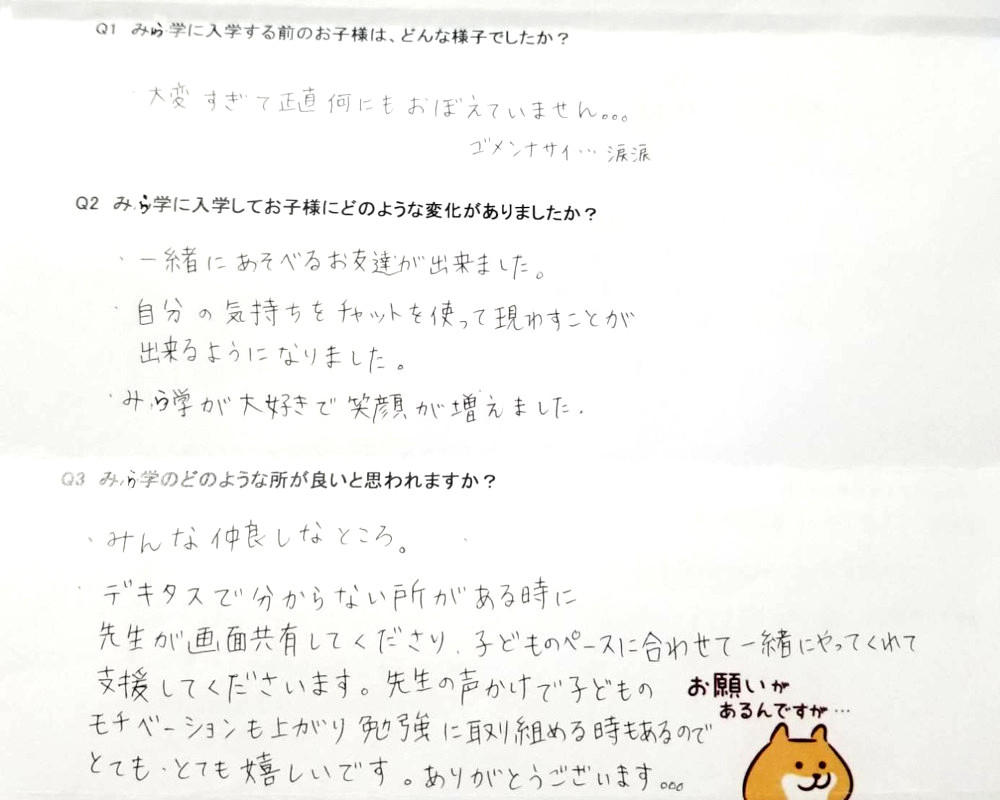 Q1 みら学に入学する前のお子様は、どんな様子でしたか？
大変すぎて正直何にもおぼえていません。。。
ゴメンナサイ… 涙涙
Q2 みら学に入学してお子様にどのような変化がありましたか？
・一緒にあそべるお友達が出来ました。
・自分の気持ちをチャットを使って現わすことが
出来るようになりました。
・みら学が大好きで笑顔が増えました.
Q3 みら学のどのような所が良いと思われますか？
・みんな仲良しなところ。
・デキタスで分からない所がある時に
先生が画面共有してくださり、子どものペースに合わせて一緒にやってくれて
支援してくださいます。先生の声かけで子どもの
モチベーションも上がり勉強に取り組める時もあるので
とても・とても嬉しいです。ありがとうございます。。。
お願いが
あるんですが…